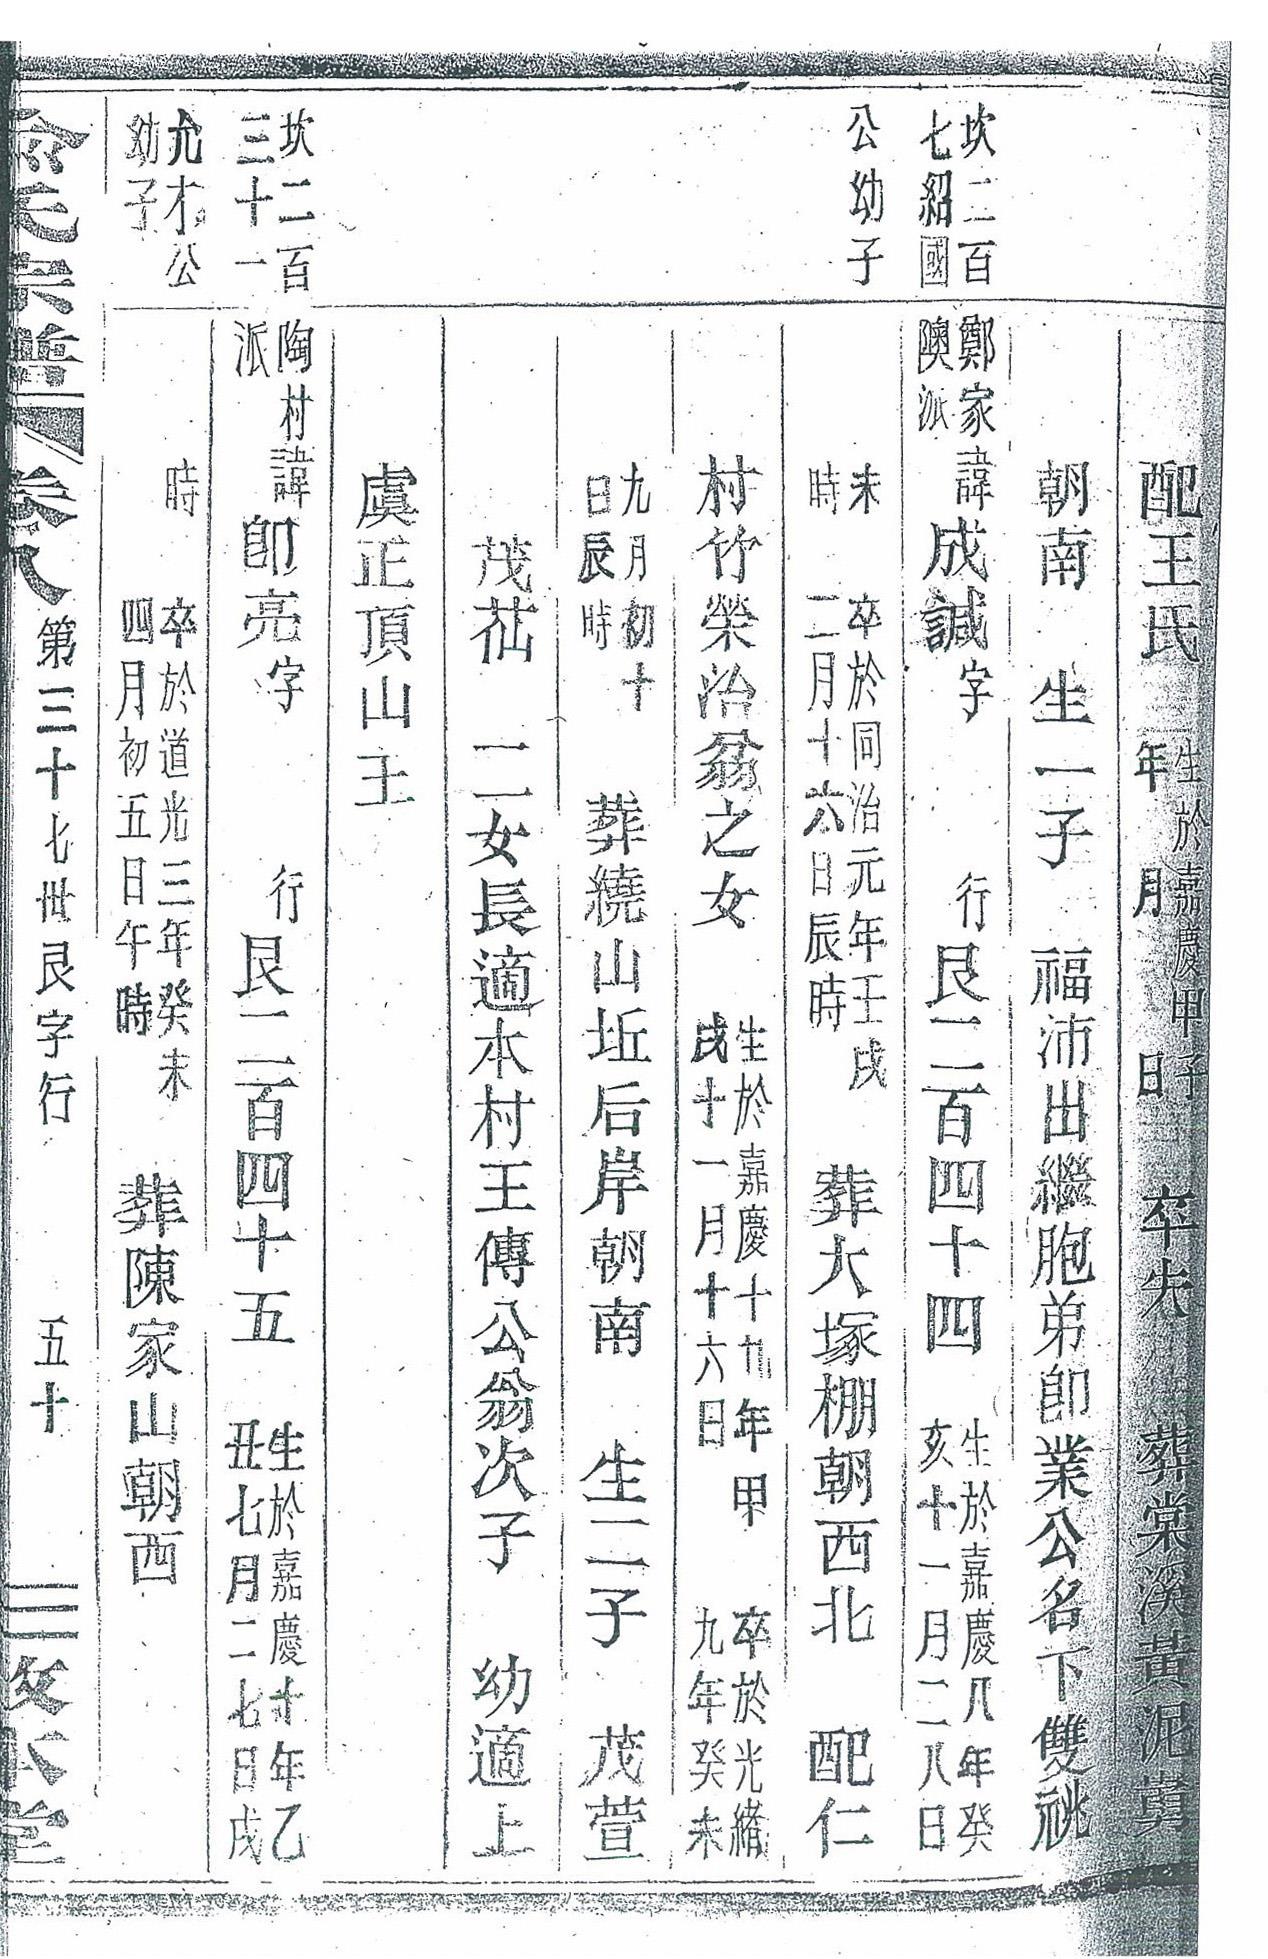 配王氏 生於嘉慶甲子
年 月 日 卒失 葬棠溪黃泥
朝南 生一子 福沛出繼胞弟卽業公名下雙祧
坎二百
七紹國
公幼子
鄭家
隩派
諱成誠字 行艮二百四十四 生於嘉慶八年癸
亥十一月二八日
未
時
卒於同治元年壬戌
二月十六日辰時
葬大塚棚朝西北 配仁
村竹榮治翁之女 生於嘉慶十九年甲
戌十一月十六日
卒於光緒
九年癸未
九月初十
日辰時
葬繞山坵后岸朝南 生二子 茂萱
茂荪 二女長適本村王傳公翁次子 幼適上
虞正頂山王
坎二百
三十一
允才公
幼子
陶村
派
諱卽亮字 行艮二百四十五 生於嘉慶十年乙
丑七月二七日戌
時
卒於道光三年癸未
四月初五日午時
葬陳家山朝西
宗譜 卷八 第三十七世艮字行 五十 三 本堂